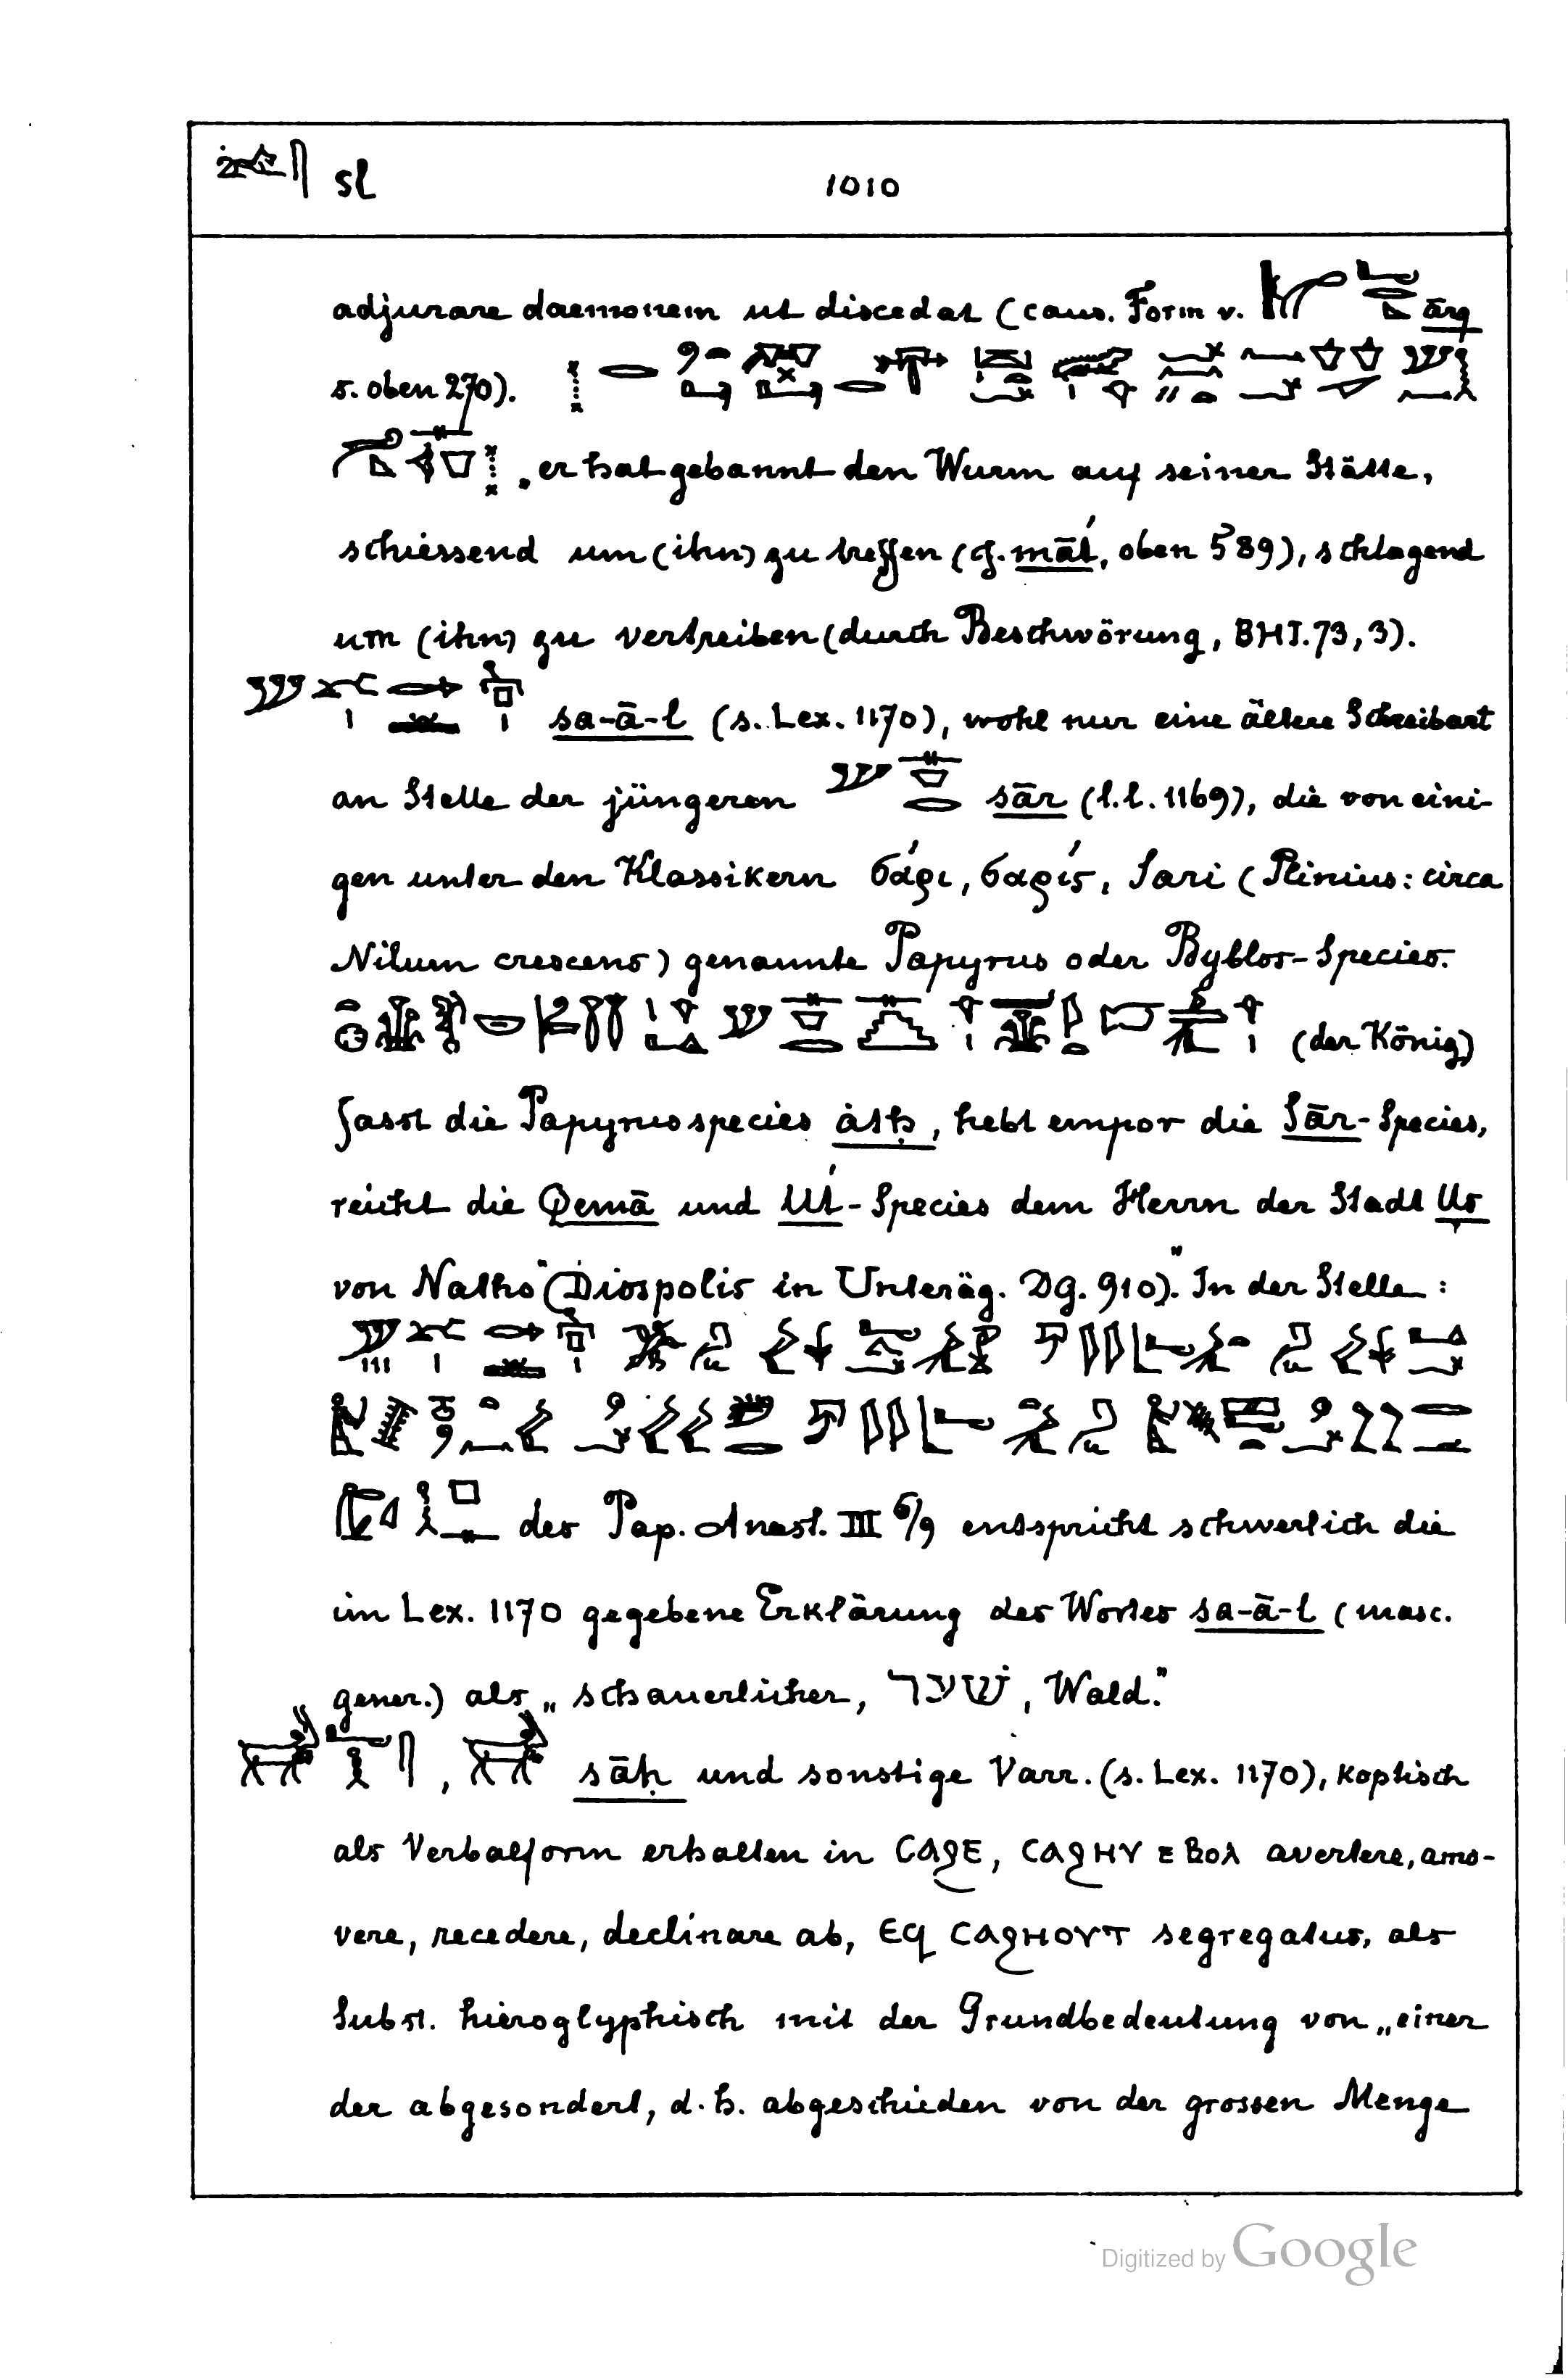 sl 1010
adjurare daemonem ut discedat (caus. Form v. ārq
s. oben 270).
„er hat gebannt den Wurm auf seiner Stätte,
schiessend um (ihn) zu treffen (cf. māt́, oben 589), schlagend
um (ihn) zu vertreiben (durch Beschwörung, BHI. 73, 3).
sa-ā-l (s. Lex. 1170), wohl nur eine ältere Schreibart
an Stelle der jüngeren sār (l.l. 1169), die von eini-
gen unter den Klassikern σάρι, σαρίς, Sari (Plinius: circa
Nilum crescens) genannte Papyrus oder Byblos-Species.
(der König)
fasst die Papyrusspecies àtḥ, hebt empor die Sār-Species,
reicht die Qemā und Ut́-Species dem Herrn der Stadt Us
von Natho" (Diospolis in Unteräg. DG. 910)." In der Stelle:
des Pap. Anast. III 6/9 entspricht schwerlich die
im Lex. 1170 gegebene Erklärung des Wortes sa-ā-l (masc.
gener.) als „schauerlicher, שׁער, Wald."
, sāḥ und sonstige Varr. (s. Lex. 1170), koptisch
als Verbalform erhalten in ⲤⲀϨⲈ, ⲤⲀϨⲎⲨ ⲈⲂⲞⲗ avertere, amo-
vere, recedere, declinare ab, ⲈϤ ⲤⲀϨⲎⲞⲨⲦ segregatus, als
Subst. hieroglyphisch mit der Grundbedeutung von „einer
der abgesondert, d.h. abgeschieden von der grossen Menge
Digitized by Google